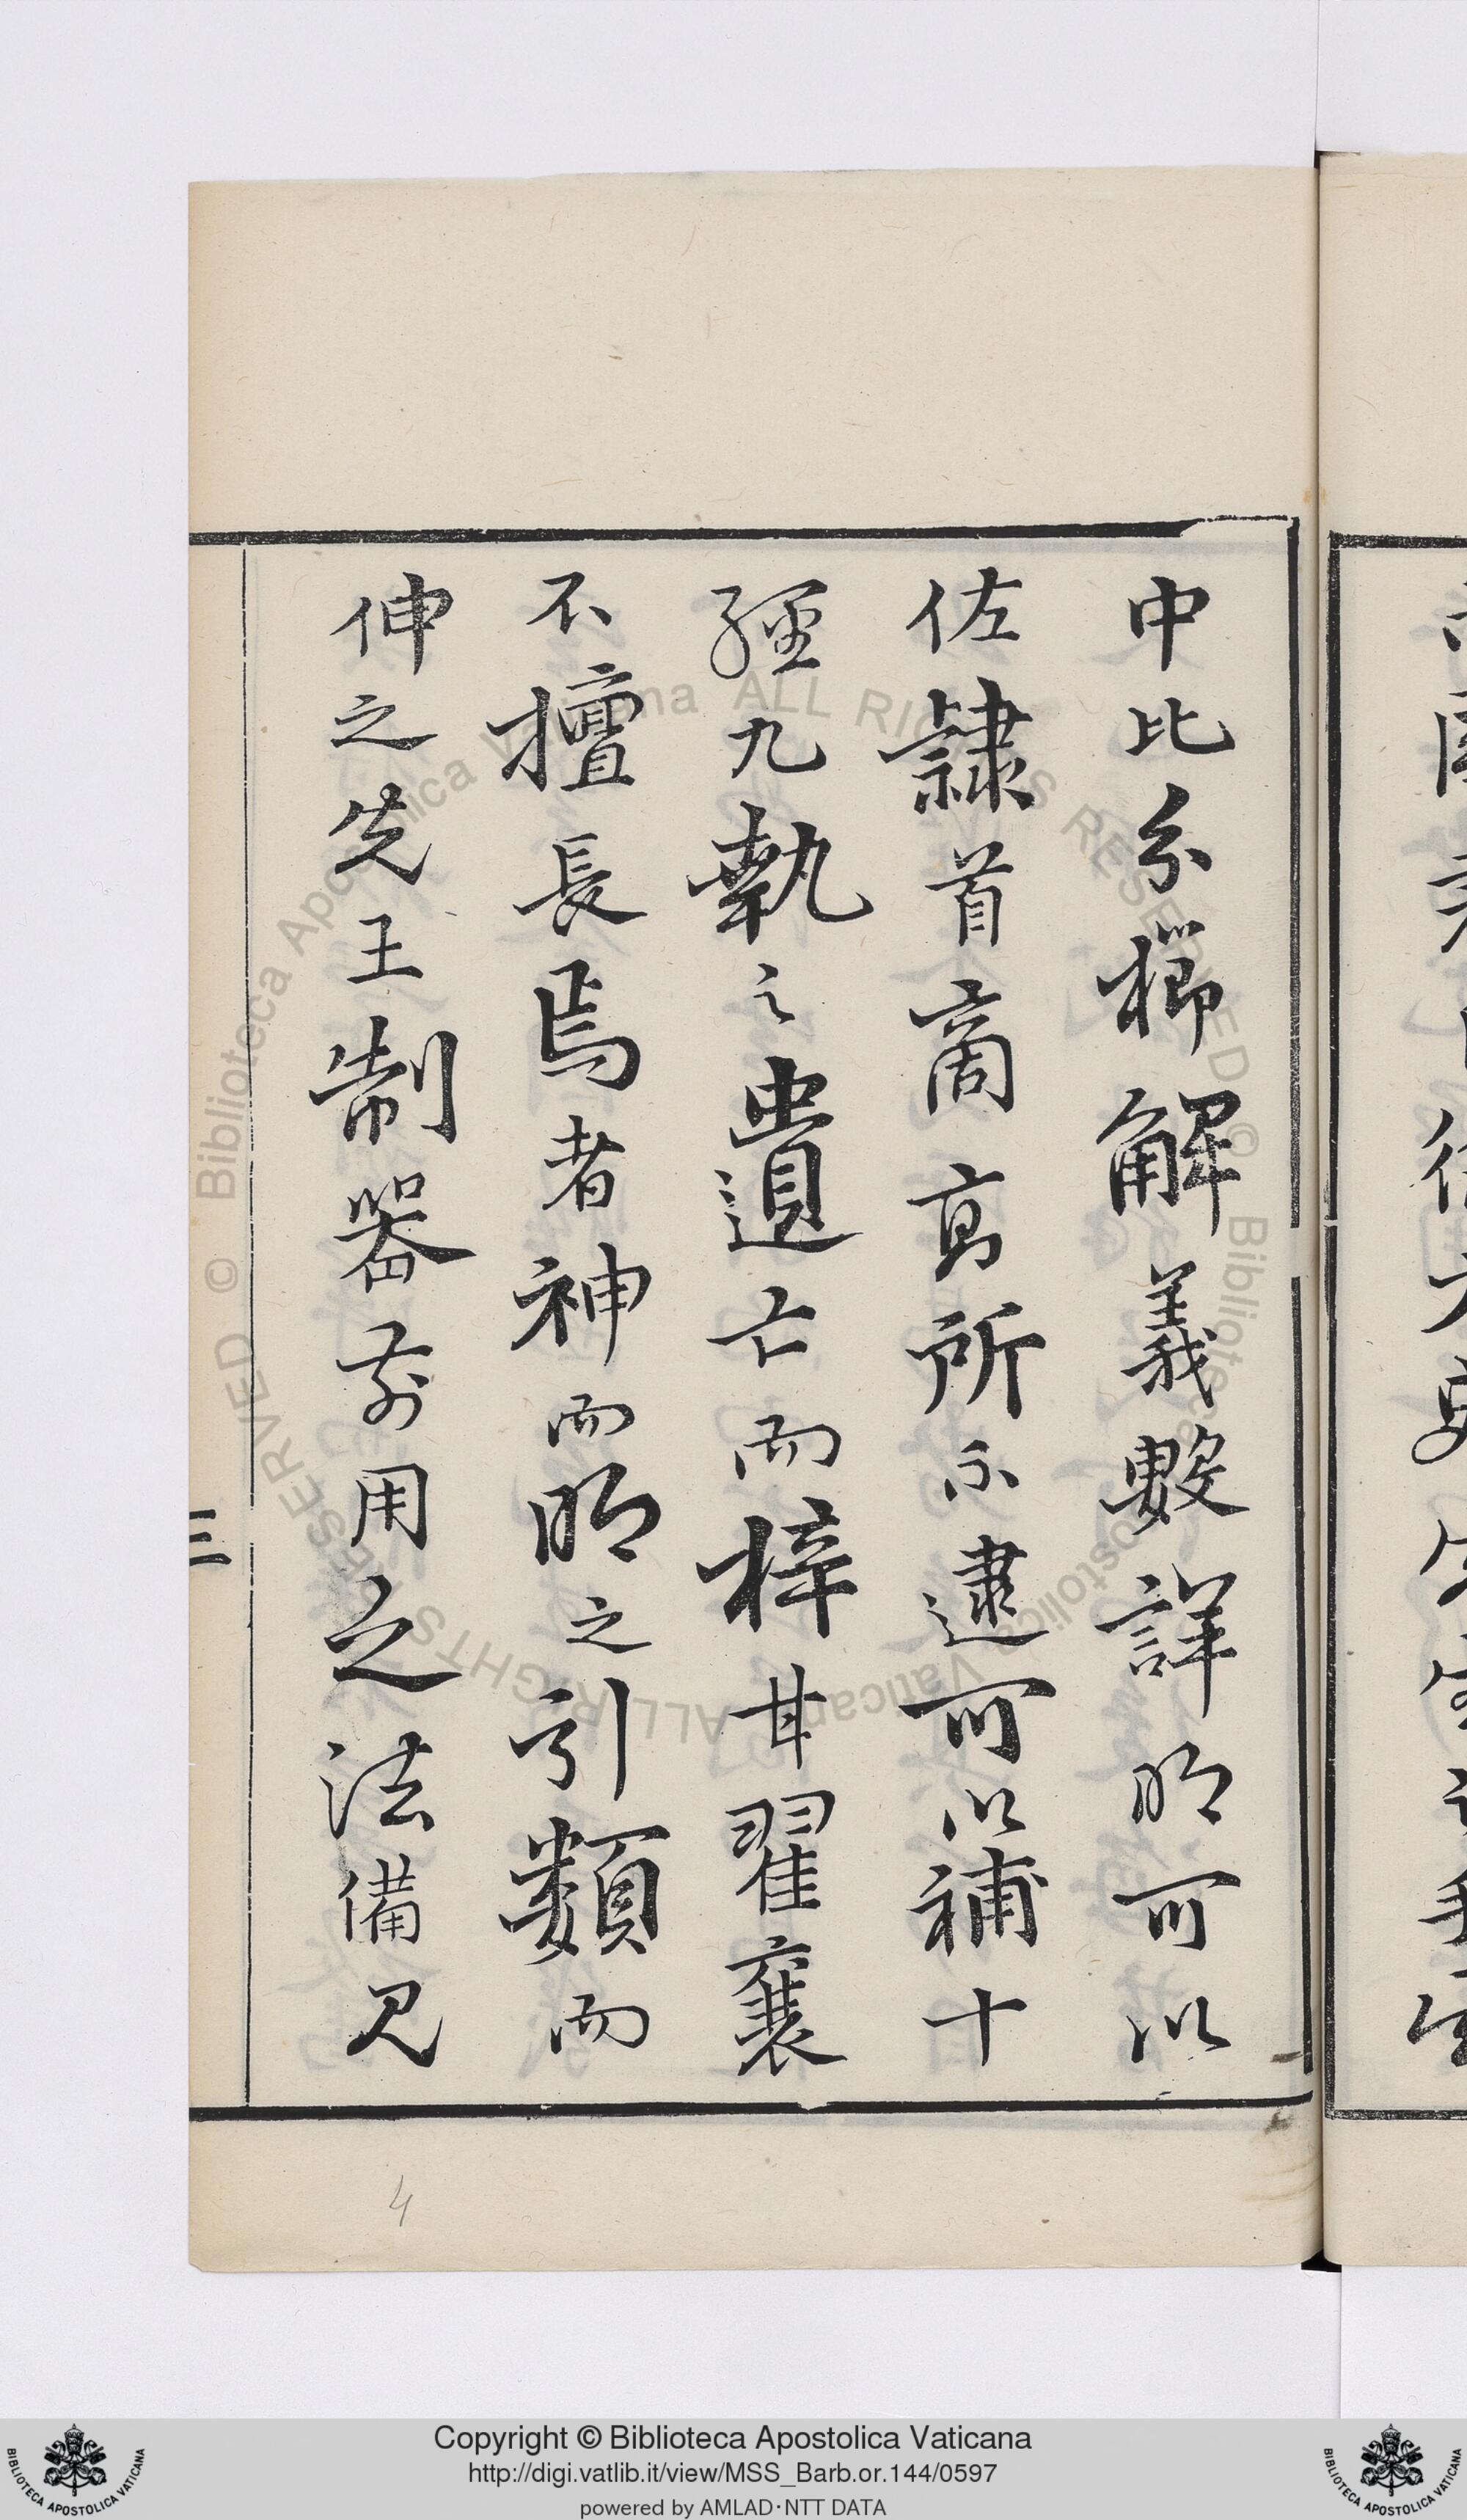 中比糸櫛解義數詳明可以
佐隷首商高所不逮可以補十
經九執之遺亡而梓甘翟襄
不擅長焉者神而明之引類而
伸之先王制器前用之法備見
三
4
Copyright © Biblioteca Apostolica Vaticana
http://digi.vatlib.it/view/MSS_Barb.or.144/0597
powered by AMLAD·NTT DATA
© Biblioteca Apostolica Vaticana ALL RIGHTS RESERVED
© Biblioteca Apostolica Vaticana ALL RIGHTS RESERVED
BIBLIOTECA APOSTOLICA VATICANA
BIBLIOTECA APOSTOLICA VATICANA